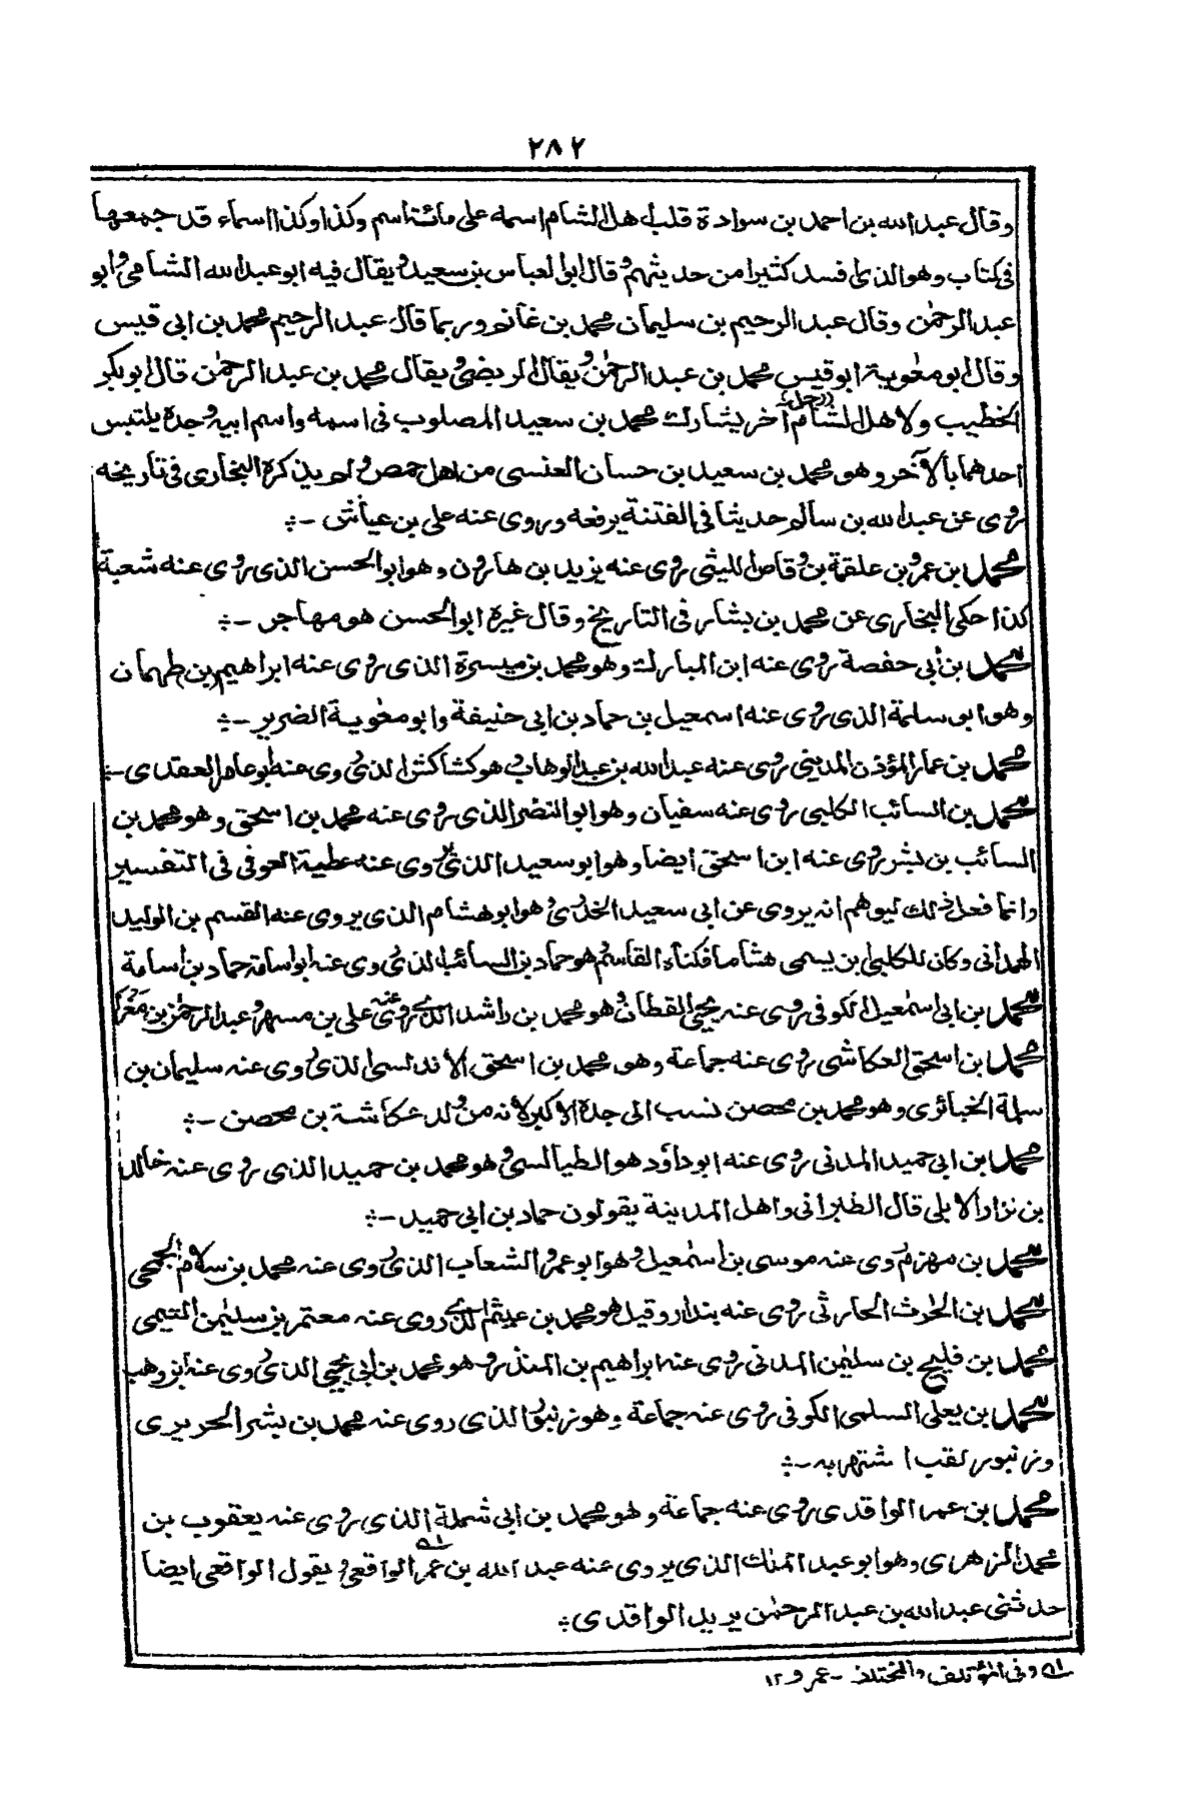 ٢٨٢
وقال عبد الله بن احمد بن سوادة قلب اهل الشام اسمه على مائة اسم وكذا وكذا اسماء قد جمعها
فى كتاب وهو الذى افسد كثيرا من حديثهم وقال ابو العباس بن سعيد ويقال فيه ابو عبد الله الشامى وابو
عبد الرحمٰن وقال عبد الرحيم بن سليمان محمد بن غانم وربما قال عبد الرحيم محمد بن ابى قيس
وقال ابو معٰوية ابو قيس محمد بن عبد الرحمٰن ويقال الربضى ويقال محمد بن عبد الرحمٰن قال ابو بكر
الخطيب ولاهل الشام (رجل) آخر يشارك محمد بن سعيد المصلوب فى اسمه واسم ابيه وجده يلتبس
احدهما بالآخر وهو محمد بن سعيد بن حسان العنسى من اهل حمص ولم يذكره البخارى فى تاريخه
روى عن عبد الله بن سالم حديثا فى الفتنة يرفعه وروى عنه على بن عياش -:
محمد بن عمرو بن علقمة بن وقاص الليثى روى عنه يزيد بن هارون وهو ابو الحسن الذى روى عنه شعبة
كذا حكى البخارى عن محمد بن بشار فى التاريخ وقال غيره ابو الحسن هو مهاجر -:
محمد بن أبى حفصة روى عنه ابن المبارك وهو محمد بن ميسرة الذى روى عنه ابراهيم بن طهمان
وهو ابو سلمة الذى روى عنه اسمعيل بن حماد بن ابى حنيفة وابو معٰوية الضرير -:
محمد بن عمار المؤذن المدينى روى عنه عبد الله بن عبد الوهاب وهو كشاكش الذى روى عنه ابو عامر العقدى -:
محمد بن السائب الكلبى روى عنه سفيان وهو ابو النضر الذى روى عنه محمد بن اسحٰق وهو محمد بن
السائب بن بشر روى عنه ابن اسحٰق ايضا وهو ابو سعيد الذى روى عنه عطية العوفى فى التفسير
وانما فعل ذلك ليوهم انه يروى عن ابى سعيد الخدرى وهو ابو هشام الذى يروى عنه القسم بن الوليد
الهمدانى وكان للكلبى ابن يسمى هشاما فكناه القاسم وهو حماد بن السائب الذى روى عنه ابو اسامة حماد بن اسامة
محمد بن ابى اسمٰعيل الكوفى روى عنه يحيى القطان وهو محمد بن راشد الذى روى عنه على بن مسهر وعبد الرحمٰن بن مغراء
محمد بن اسحٰق العكاشى روى عنه جماعة وهو محمد بن اسحٰق الاندلسى الذى روى عنه سليمان بن
سلمة الخبائرى وهو محمد بن محصن نسب الى جده الاكبر لانه من ولد عكاشة بن محصن -:
محمد بن ابى حميد المدنى روى عنه ابو داؤد هو الطيالسى وهو محمد بن حميد الذى روى عنه خالد
بن نزار الايلى قال الطبرانى واهل المدينة يقولون حماد بن ابى حميد -:
محمد بن مهزم روى عنه موسى بن اسمٰعيل وهو ابو عمرو الشعاب الذى روى عنه محمد بن سلام الجمحى
محمد بن الحٰرث الحارثى روى عنه بندار وقيل هو محمد بن عيثم الذى روى عنه معتمر بن سليمٰن التيمى
محمد بن فليح بن سليمٰن المدنى روى عنه ابراهيم بن المنذر وهو محمد بن ابى يحيى الذى روى عنه ابن وهب
محمد بن يعلى السلمى الكوفى روى عنه جماعة وهو زنبور الذى روى عنه محمد بن بشر الحريرى
وزنبور لقب اشتهر به -:
محمد بن عمر الواقدى روى عنه جماعة وهو محمد بن ابى شملة الذى روى عنه يعقوب بن
محمد الزهرى وهو ابو عبد الملك الذى يروى عنه عبد الله بن عمر الواقعى ويقول الواقعى ايضا
حدثنى عبد الله بن عبد الرحمٰن يريد الواقدى :
وفى المؤتلف والمختلف - عمرو ١٢